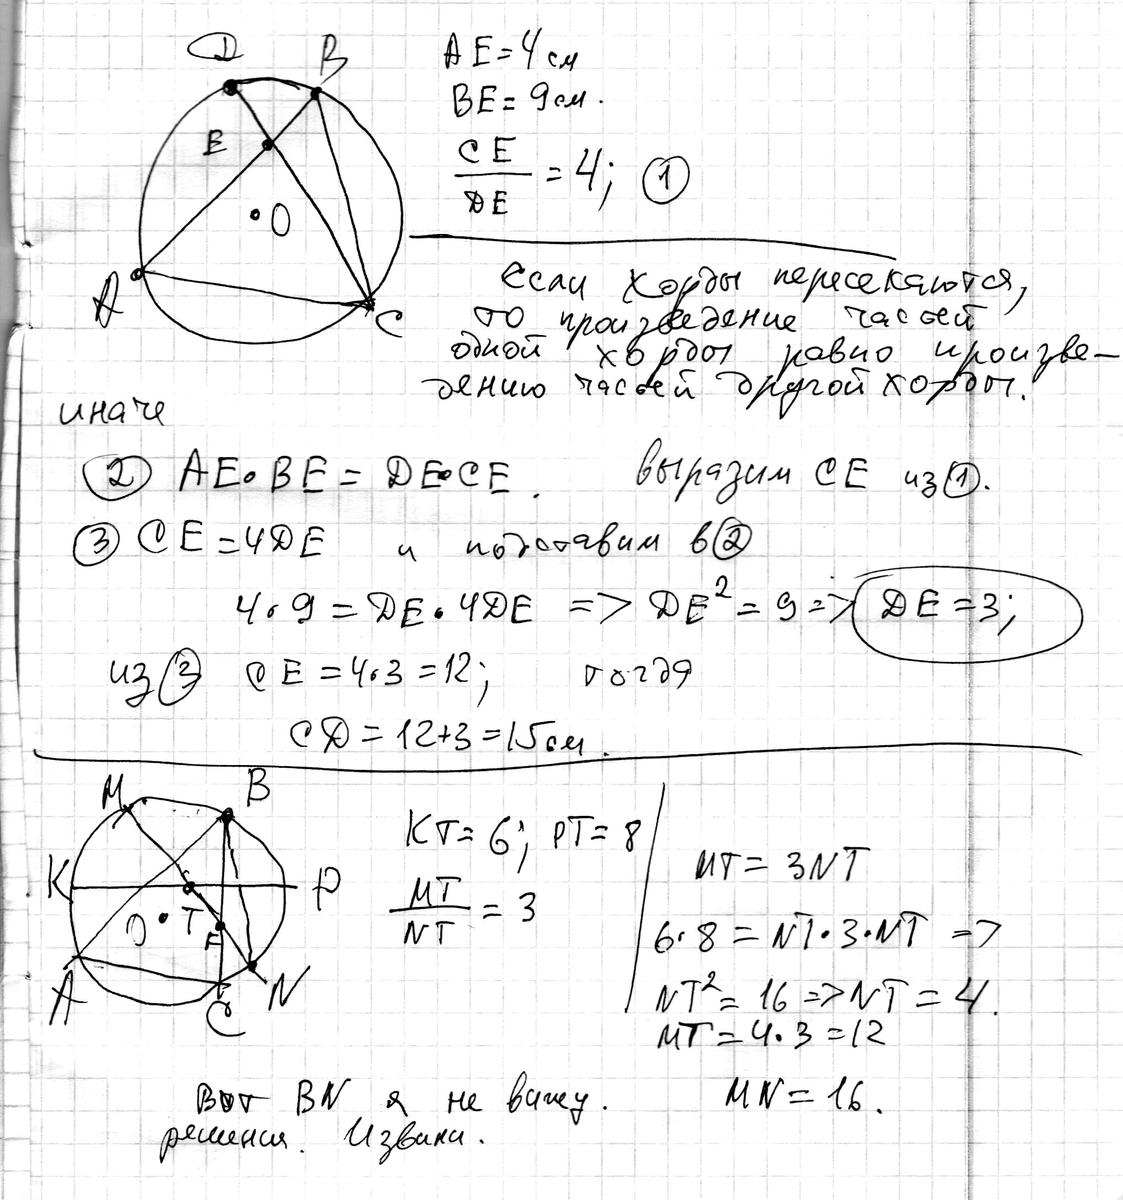 D B
AE = 4 см
BE = 9 см.
E
CE/DE = 4; ①
O
A
C
если хорды пересекаются,
то произведение частей
одной хорды равно произве-
дению частей другой хорды.
иначе
② AE•BE = DE•CE. выразим CE из ①.
③ CE = 4DE и подставим в ②
4•9 = DE•4DE => DE² = 9 => DE = 3;
из ③ CE = 4•3 = 12; тогдя
CD = 12+3 = 15 см.
M B
KT = 6; PT = 8
K P
MT/NT = 3
MT = 3NT
O T
F
6•8 = NT•3•NT =>
A C N
NT² = 16 => NT = 4.
MT = 4•3 = 12
MN = 16.
Вот BN я не вижу.
решения. Извини.